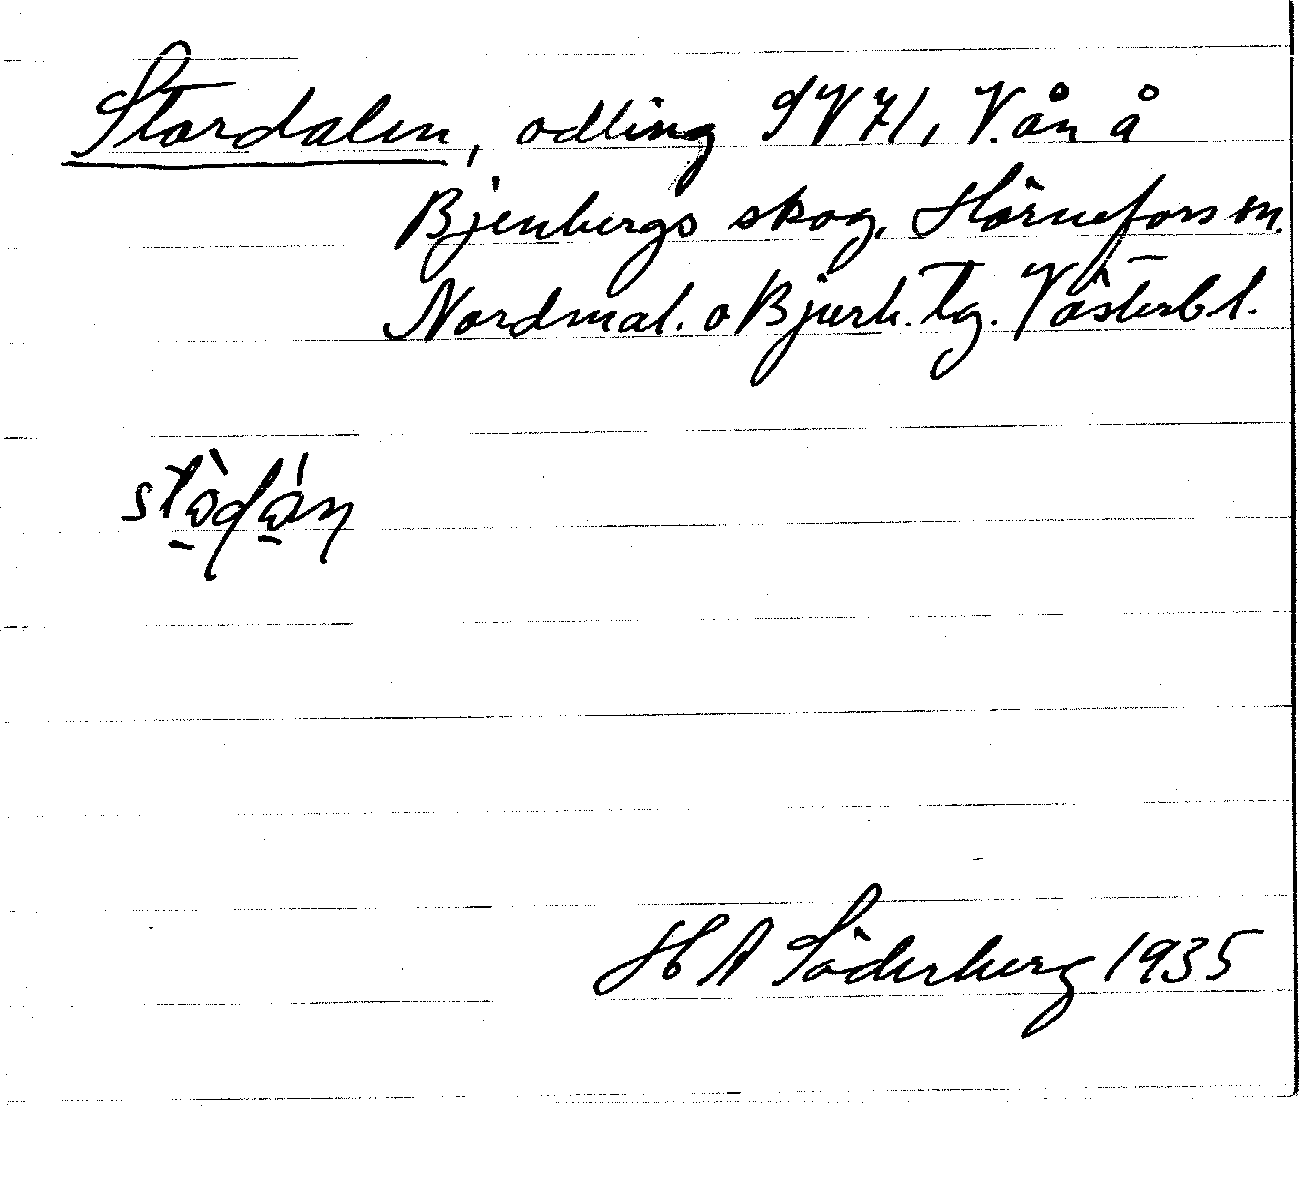 Stordalen, odling SV 71, V. ån å
Bjenbergs skog, Hörnefors sn.
Nordmal. o Bjurh. tg. Västerb l.
H A Söderberg 1935